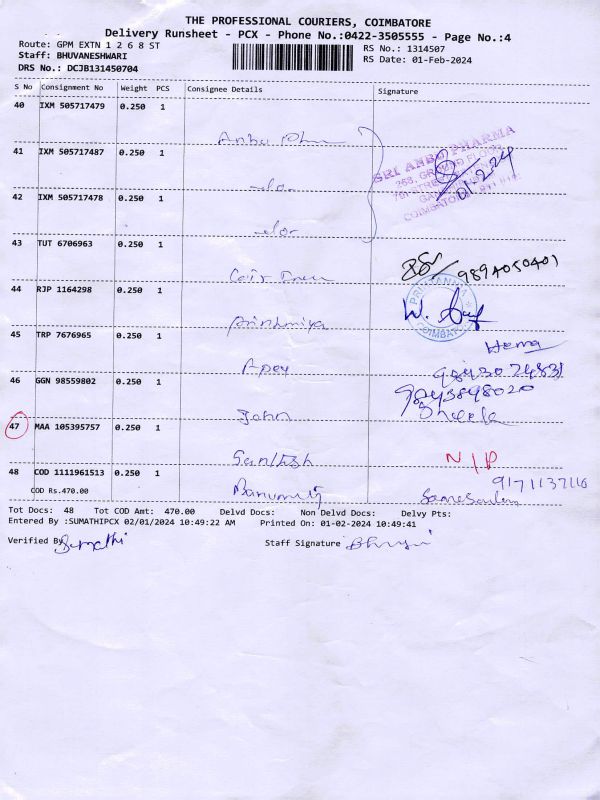 THE PROFESSIONAL COURIERS, COIMBATORE
Delivery Runsheet - PCX - Phone No.:0422-3505555 - Page No.:4
Route: GPM EXTN 1 2 6 8 ST
RS No.: 1314507
Staff: BHUVANESHWARI
RS Date: 01-Feb-2024
DRS No.: DCJB131450704
S No Consignment No Weight PCS Consignee Details Signature
40 IXM 505717479 0.250 1
SRI ANBU PHARMA
41 IXM 505717487 0.250 1
01-2-24
42 IXM 505717478 0.250 1
43 TUT 6706963 0.250 1
9894050401
44 RJP 1164298 0.250 1
PRIYANKA
COIMBATORE
45 TRP 7676965 0.250 1
Hema
46 GGN 98559802 0.250 1
9843898020
John Sheela
47 MAA 105395757 0.250 1
Santhosh N/P
48 COD 1111961513 0.250 1
9171137116
COD Rs.470.00
Tot Docs: 48 Tot COD Amt: 470.00 Delvd Docs: Non Delvd Docs: Delvy Pts:
Entered By :SUMATHIPCX 02/01/2024 10:49:22 AM Printed On: 01-02-2024 10:49:41
Verified By Sumathi Staff Signature